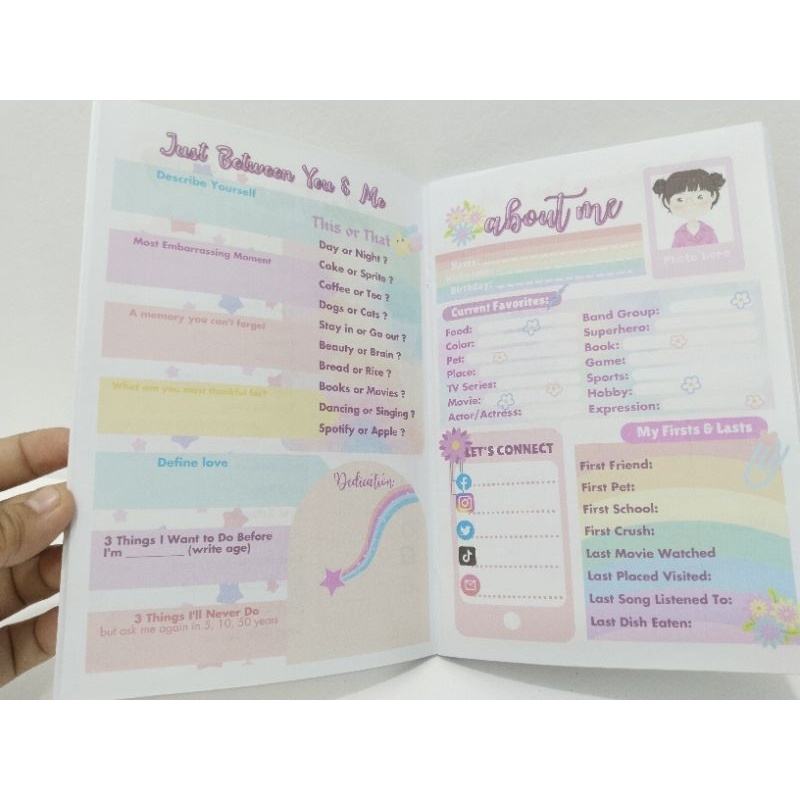 Just Between You & Me
Describe Yourself
Most Embarrassing Moment
A memory you can't forget
What are you most thankful for?
Define love
3 Things I Want to Do Before
I'm ________ (write age)
3 Things I'll Never Do
but ask me again in 5, 10, 50 years
This or That
Day or Night ?
Coke or Sprite ?
Coffee or Tea ?
Dogs or Cats ?
Stay in or Go out ?
Beauty or Brain ?
Bread or Rice ?
Books or Movies ?
Dancing or Singing ?
Spotify or Apple ?
Dedication:
about me
Name:
Birthday:
Photo here
Current Favorites:
Food:
Color:
Pet:
Place:
TV Series:
Movie:
Actor/Actress:
Band Group:
Superhero:
Book:
Game:
Sports:
Hobby:
Expression:
LET'S CONNECT
My Firsts & Lasts
First Friend:
First Pet:
First School:
First Crush:
Last Movie Watched
Last Placed Visited:
Last Song Listened To:
Last Dish Eaten: